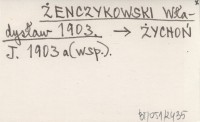 ŻENCZYKOWSKI Wła-
dysław 1903. → ŻYCHOŃ
J. 1903 a (wsp.).